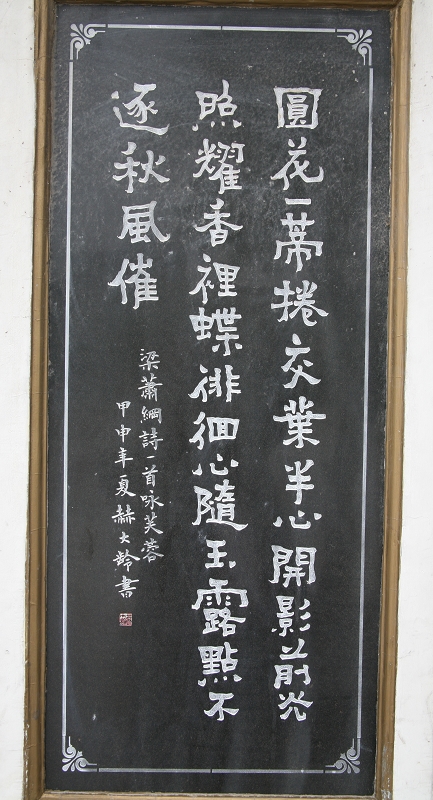 圓花一蒂捲交葉半心開影前光
照耀香裡蝶徘徊心隨玉露點不
逐秋風催
梁蕭綱詩一首咏芙蓉
甲申年夏赫大齡書